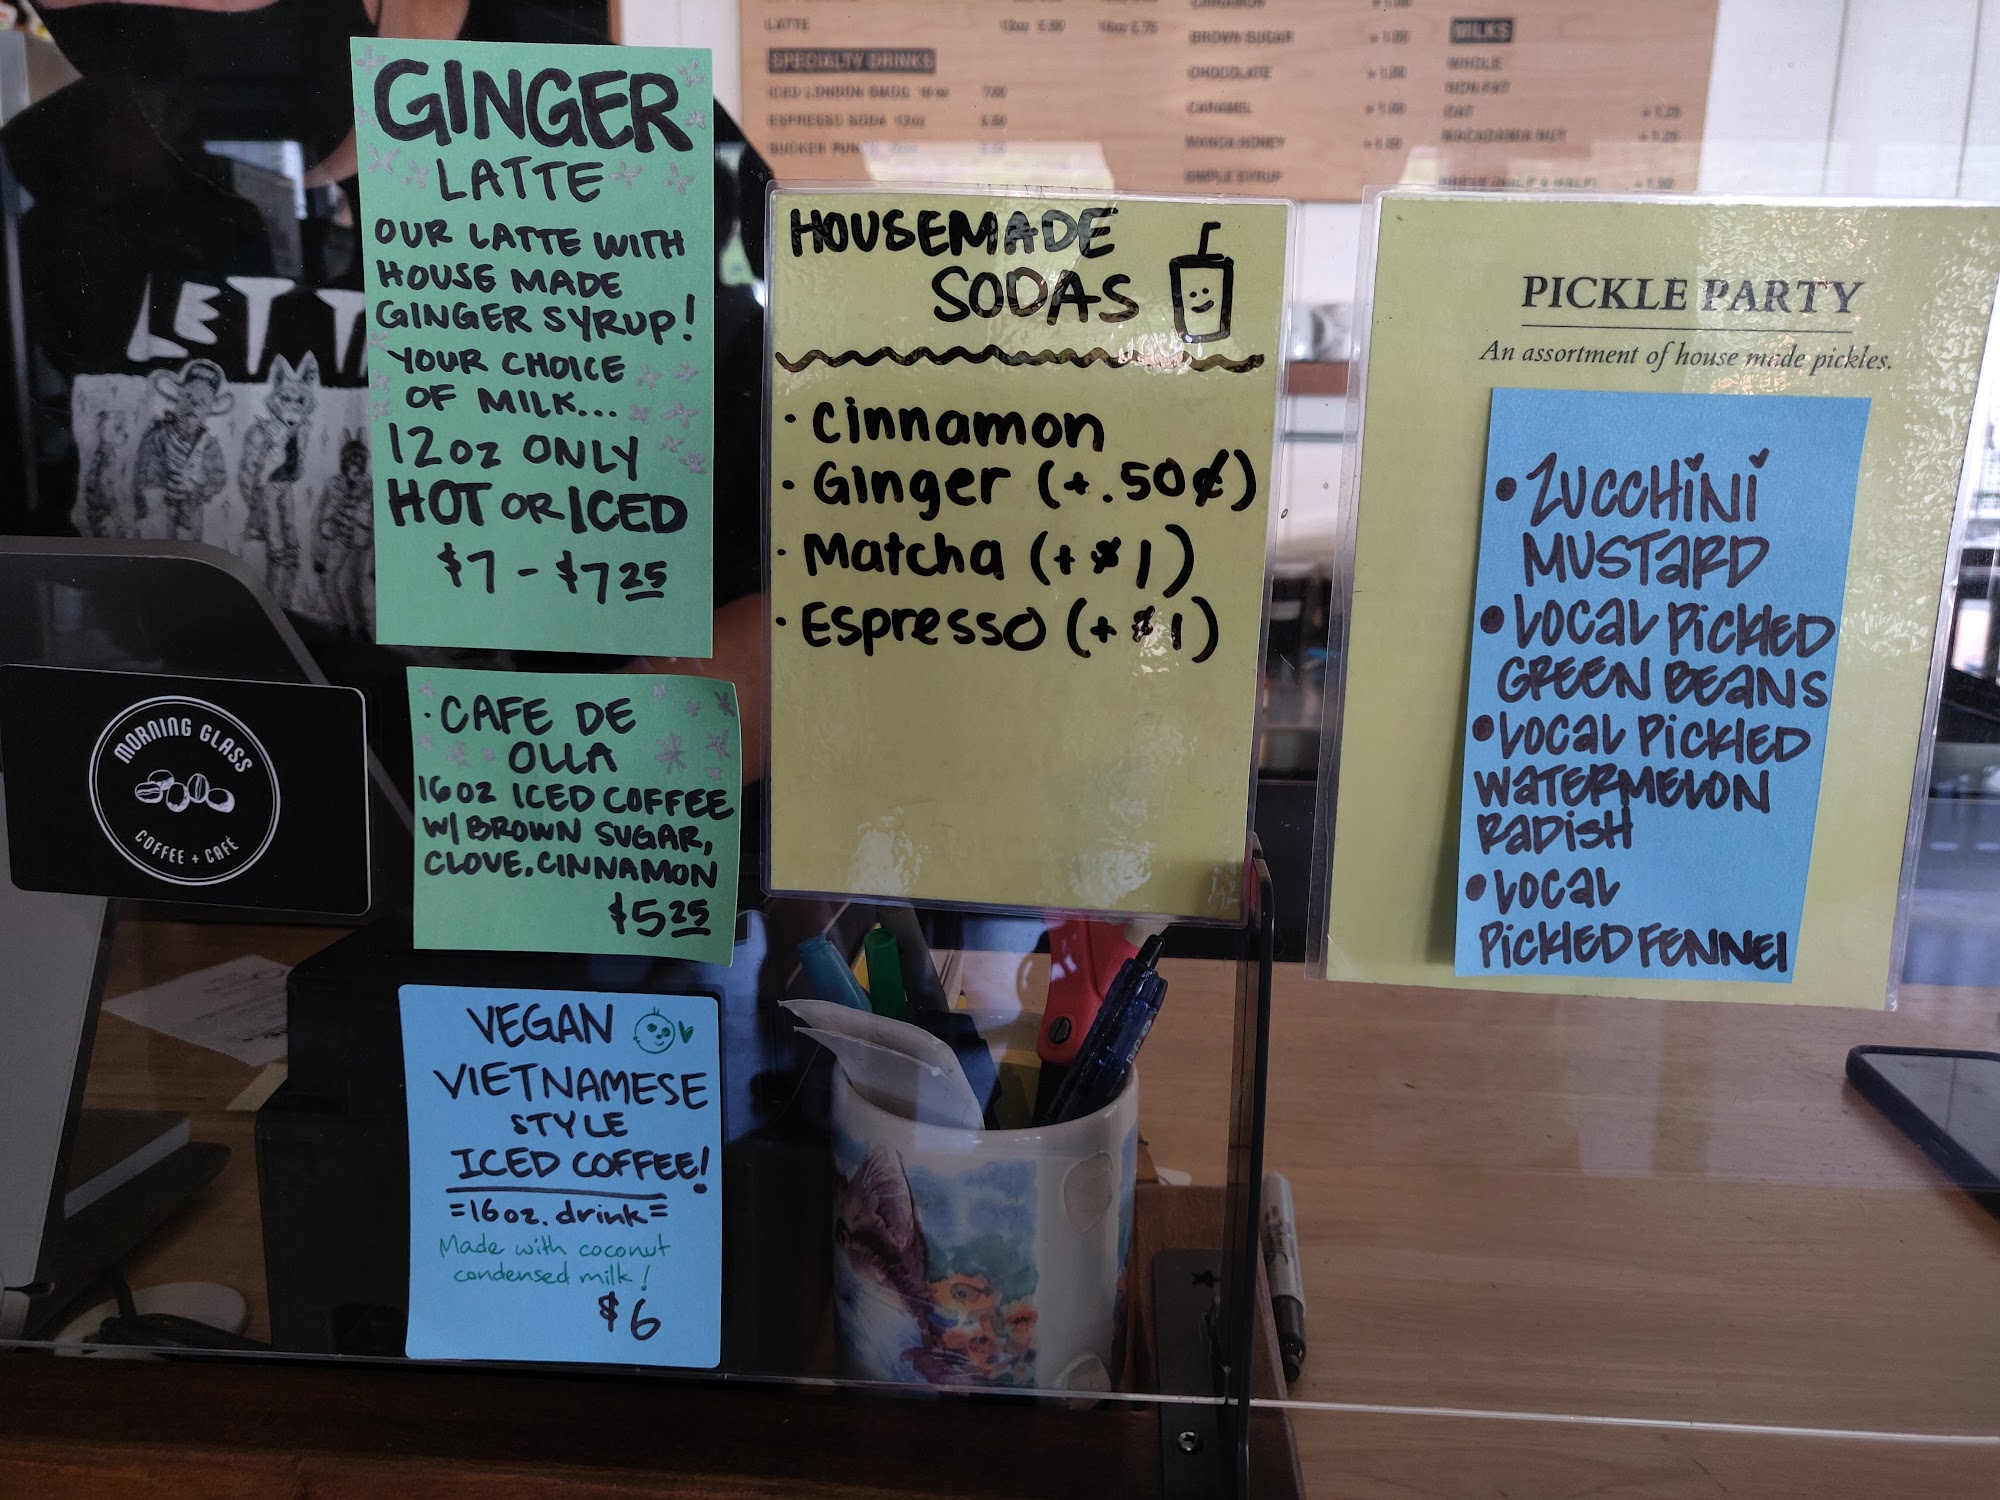 GINGER
LATTE
OUR LATTE WITH
HOUSE MADE
GINGER SYRUP!
YOUR CHOICE
OF MILK...
12oz ONLY
HOT OR ICED
$7 - $7 25
· CAFE DE
OLLA
16oz ICED COFFEE
W/ BROWN SUGAR,
CLOVE, CINNAMON
$5 25
VEGAN
VIETNAMESE
STYLE
ICED COFFEE!
=16oz. drink=
Made with coconut
condensed milk!
$6
MORNING GLASS
COFFEE + CAFÉ
LET T
HOUSEMADE
SODAS
· Cinnamon
· Ginger (+.50¢)
· Matcha (+$1)
· Espresso (+$1)
PICKLE PARTY
An assortment of house made pickles.
• ZUCCHINI
MUSTARD
• LOCAL PICKLED
GREEN BEANS
• LOCAL PICKLED
WATERMELON
RADISH
• LOCAL
PICKLED FENNEL
LATTE 12oz 5.50 16oz 5.75
SPECIALTY DRINKS
ICED LONDON SMOG 16oz 7.00
ESPRESSO SODA 12oz
BROWN SUGAR +1.00
CHOCOLATE +1.00
CARAMEL +1.00
MANOA HONEY +1.50
SIMPLE SYRUP
MILKS
WHOLE
NON-FAT
OAT +1.25
MACADAMIA NUT +1.25